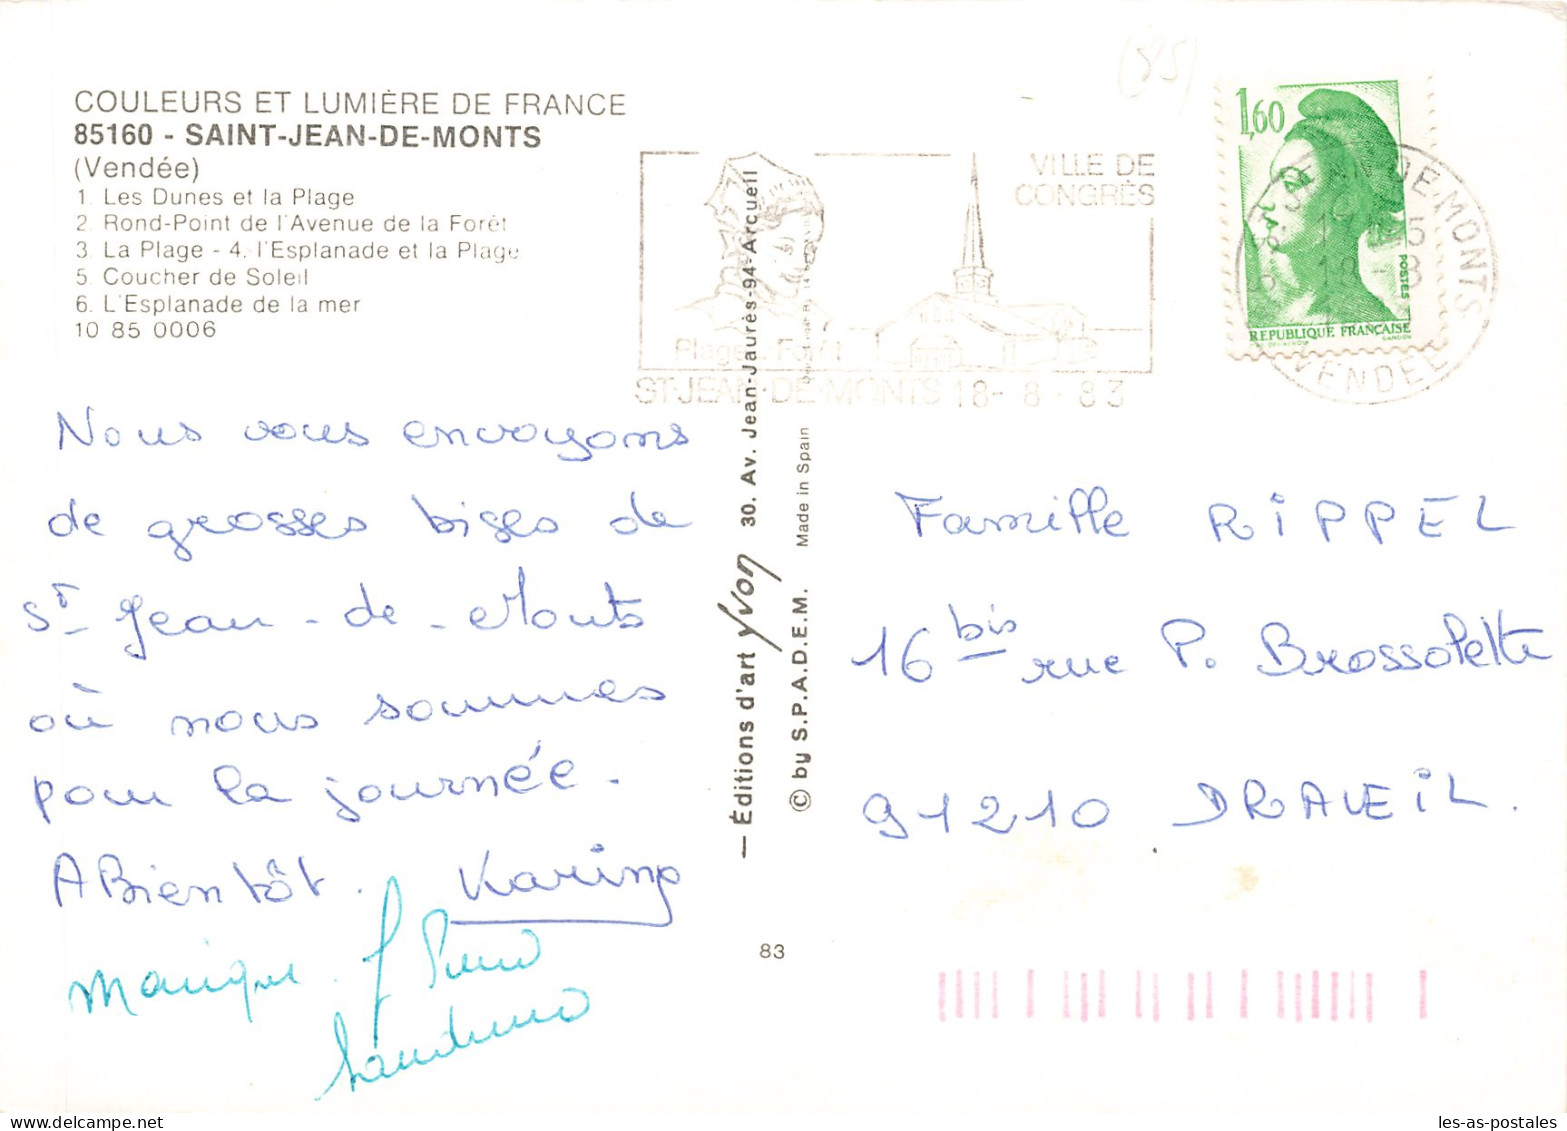 COULEURS ET LUMIÈRE DE FRANCE
85160 - SAINT-JEAN-DE-MONTS
(Vendée)
1. Les Dunes et la Plage
2. Rond-Point de l'Avenue de la Forêt
3. La Plage - 4. l'Esplanade et la Plage
5. Coucher de Soleil
6. L'Esplanade de la mer
10 85 0006
(85)
VILLE DE
CONGRÈS
Plage Forêt
ST-JEAN-DE-MONTS 18-8-83
1,60
POSTES
REPUBLIQUE FRANÇAISE
GANDON
ST JEAN DE MONTS
18-8
VENDEE
Nous vous envoyons
de grosses bises de
St Jean-de-Monts
où nous sommes
pour la journée.
A Bientôt. Karine
Monique. J Pierre
Sandrine
— Éditions d'art Yvon 30. Av. Jean-Jaurès-94-Arcueil
© by S.P.A.D.E.M. Made in Spain
83
Famille RIPPEL
16 bis rue P. Brossolette
91210 DRAVEIL.
les-as-postales